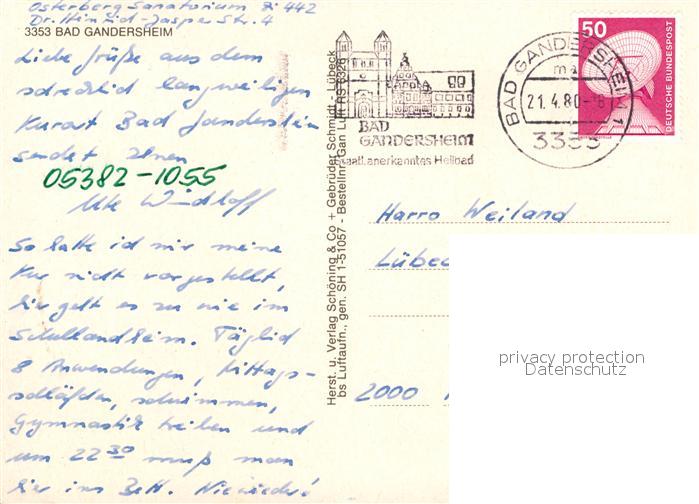 Osterberg Sanatorium Zi 442
Dr. Heinrich-Jasper Str. 4
3353 BAD GANDERSHEIM
Liebe Grüße aus dem
schrecklich langweiligen
Kurort Bad Gandersheim
sendet Ihnen
05382-1055
Ute Windhoff
So hatte ich mir meine
Kur nicht vorgestellt,
hier geht es zu wie im
Schullandheim. Täglich
8 Anwendungen, Mittags-
schläfchen, schwimmen,
Gymnastik treiben und
um 22 30 muß man
hier im Bett. Niewieder!
Herst. u. Verlag Schöning & Co + Gebrüder Schmidt - Lübeck
bs Luftaufn., gen. SH 1-51057 - Bestellnr. Gan Luft RS 6326
BAD
GANDERSHEIM
staatl. anerkanntes Heilbad
BAD GANDERSHEIM 1
ma
21.4.80-8
3353
50
DEUTSCHE BUNDESPOST
Harro Weiland
Lübec
2000
privacy protection
Datenschutz